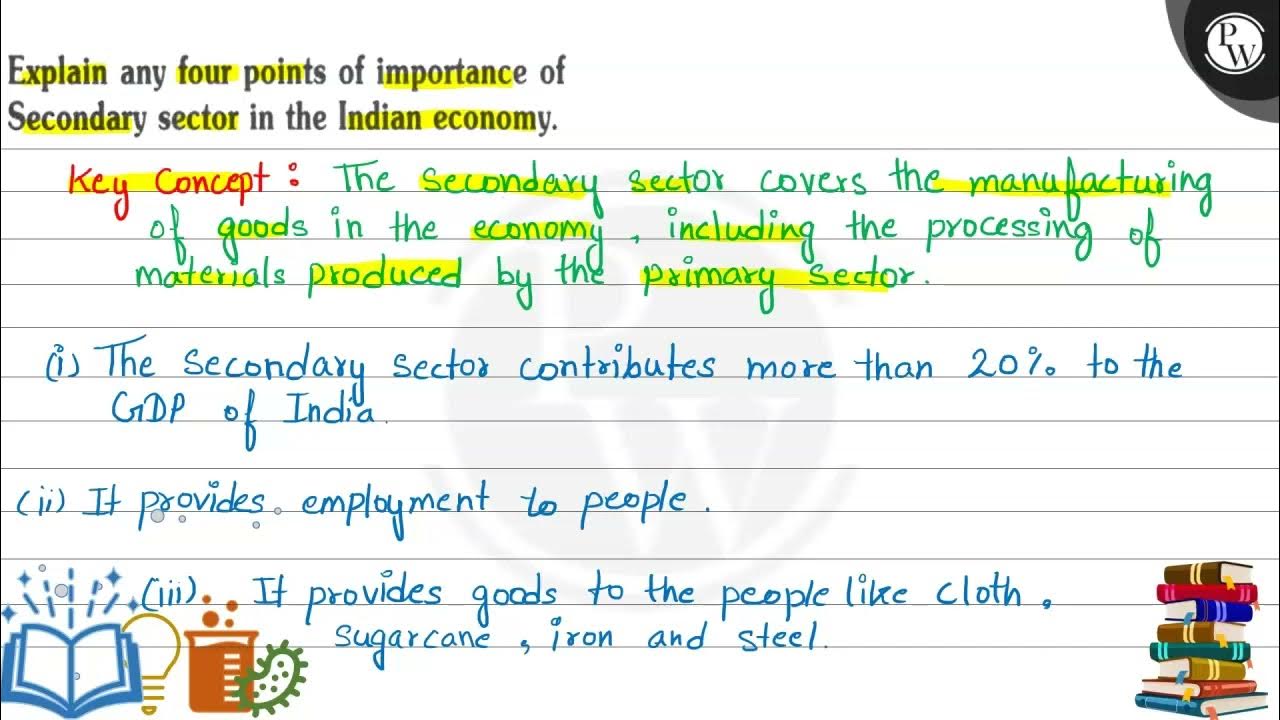 PW
Explain any four points of importance of
Secondary sector in the Indian economy.
Key Concept : The secondary sector covers the manufacturing
of goods in the economy, including the processing of
materials produced by the primary sector.
(i) The secondary sector contributes more than 20% to the
GDP of India.
(ii) It provides employment to people.
(iii) It provides goods to the people like cloth,
sugarcane, iron and steel.
PW